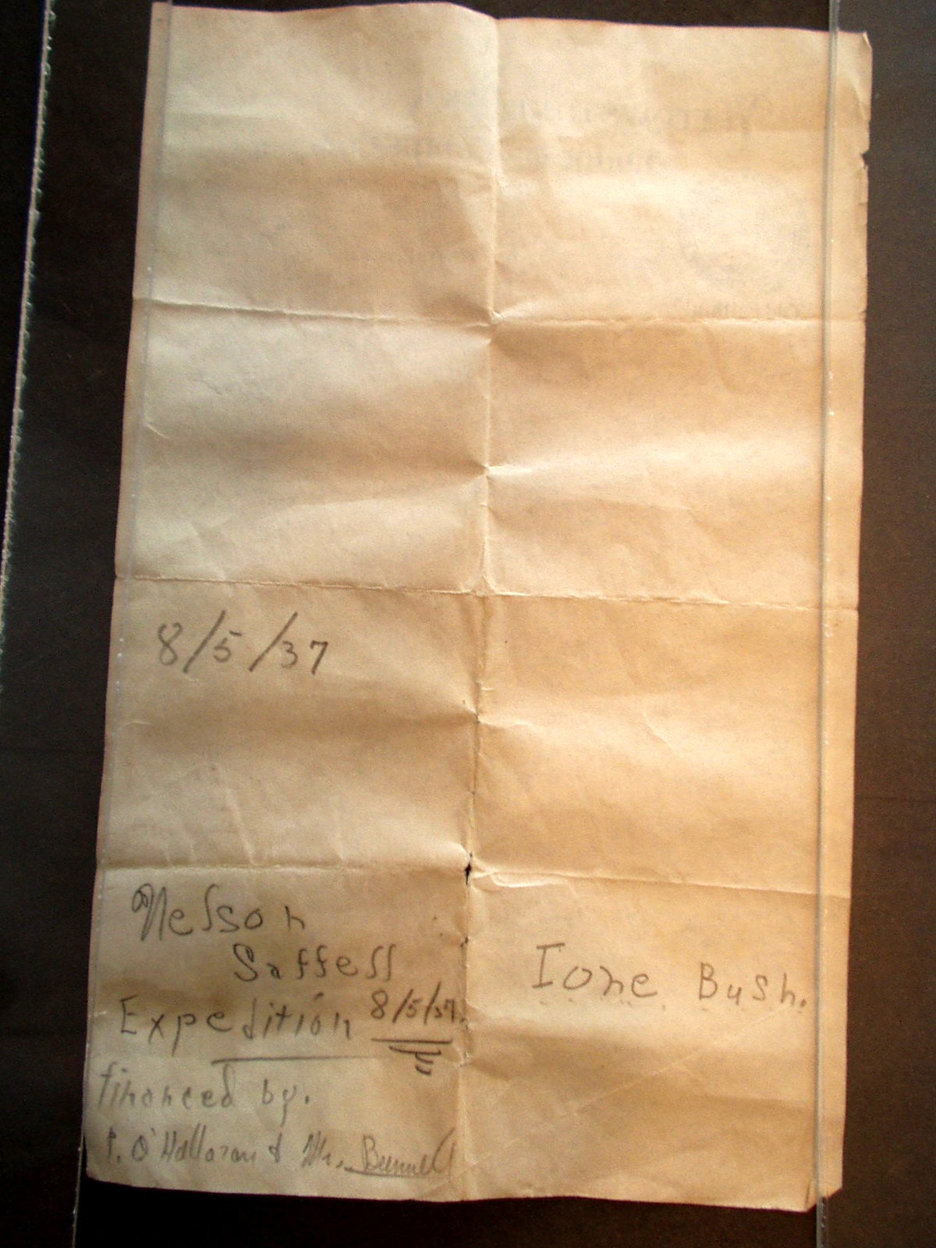 8/5/37
Nelson
Saffell
Expedition 8/5/37.
financed by.
P. O'Halloran & Mr.
Ione Bush.